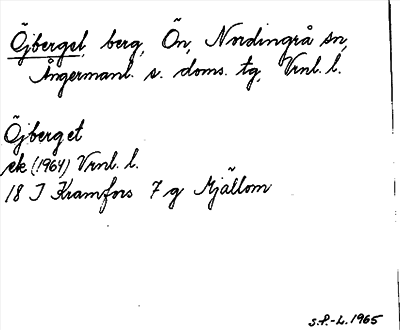 Öjberget, berg, Ön, Nordingrå sn,
Ångermanl. s. doms. tg, Vrnl. l.
Öjberget
ek (1964) Vrnl. l.
18 J Kramfors 7 g Mjällom
S.P.-L. 1965